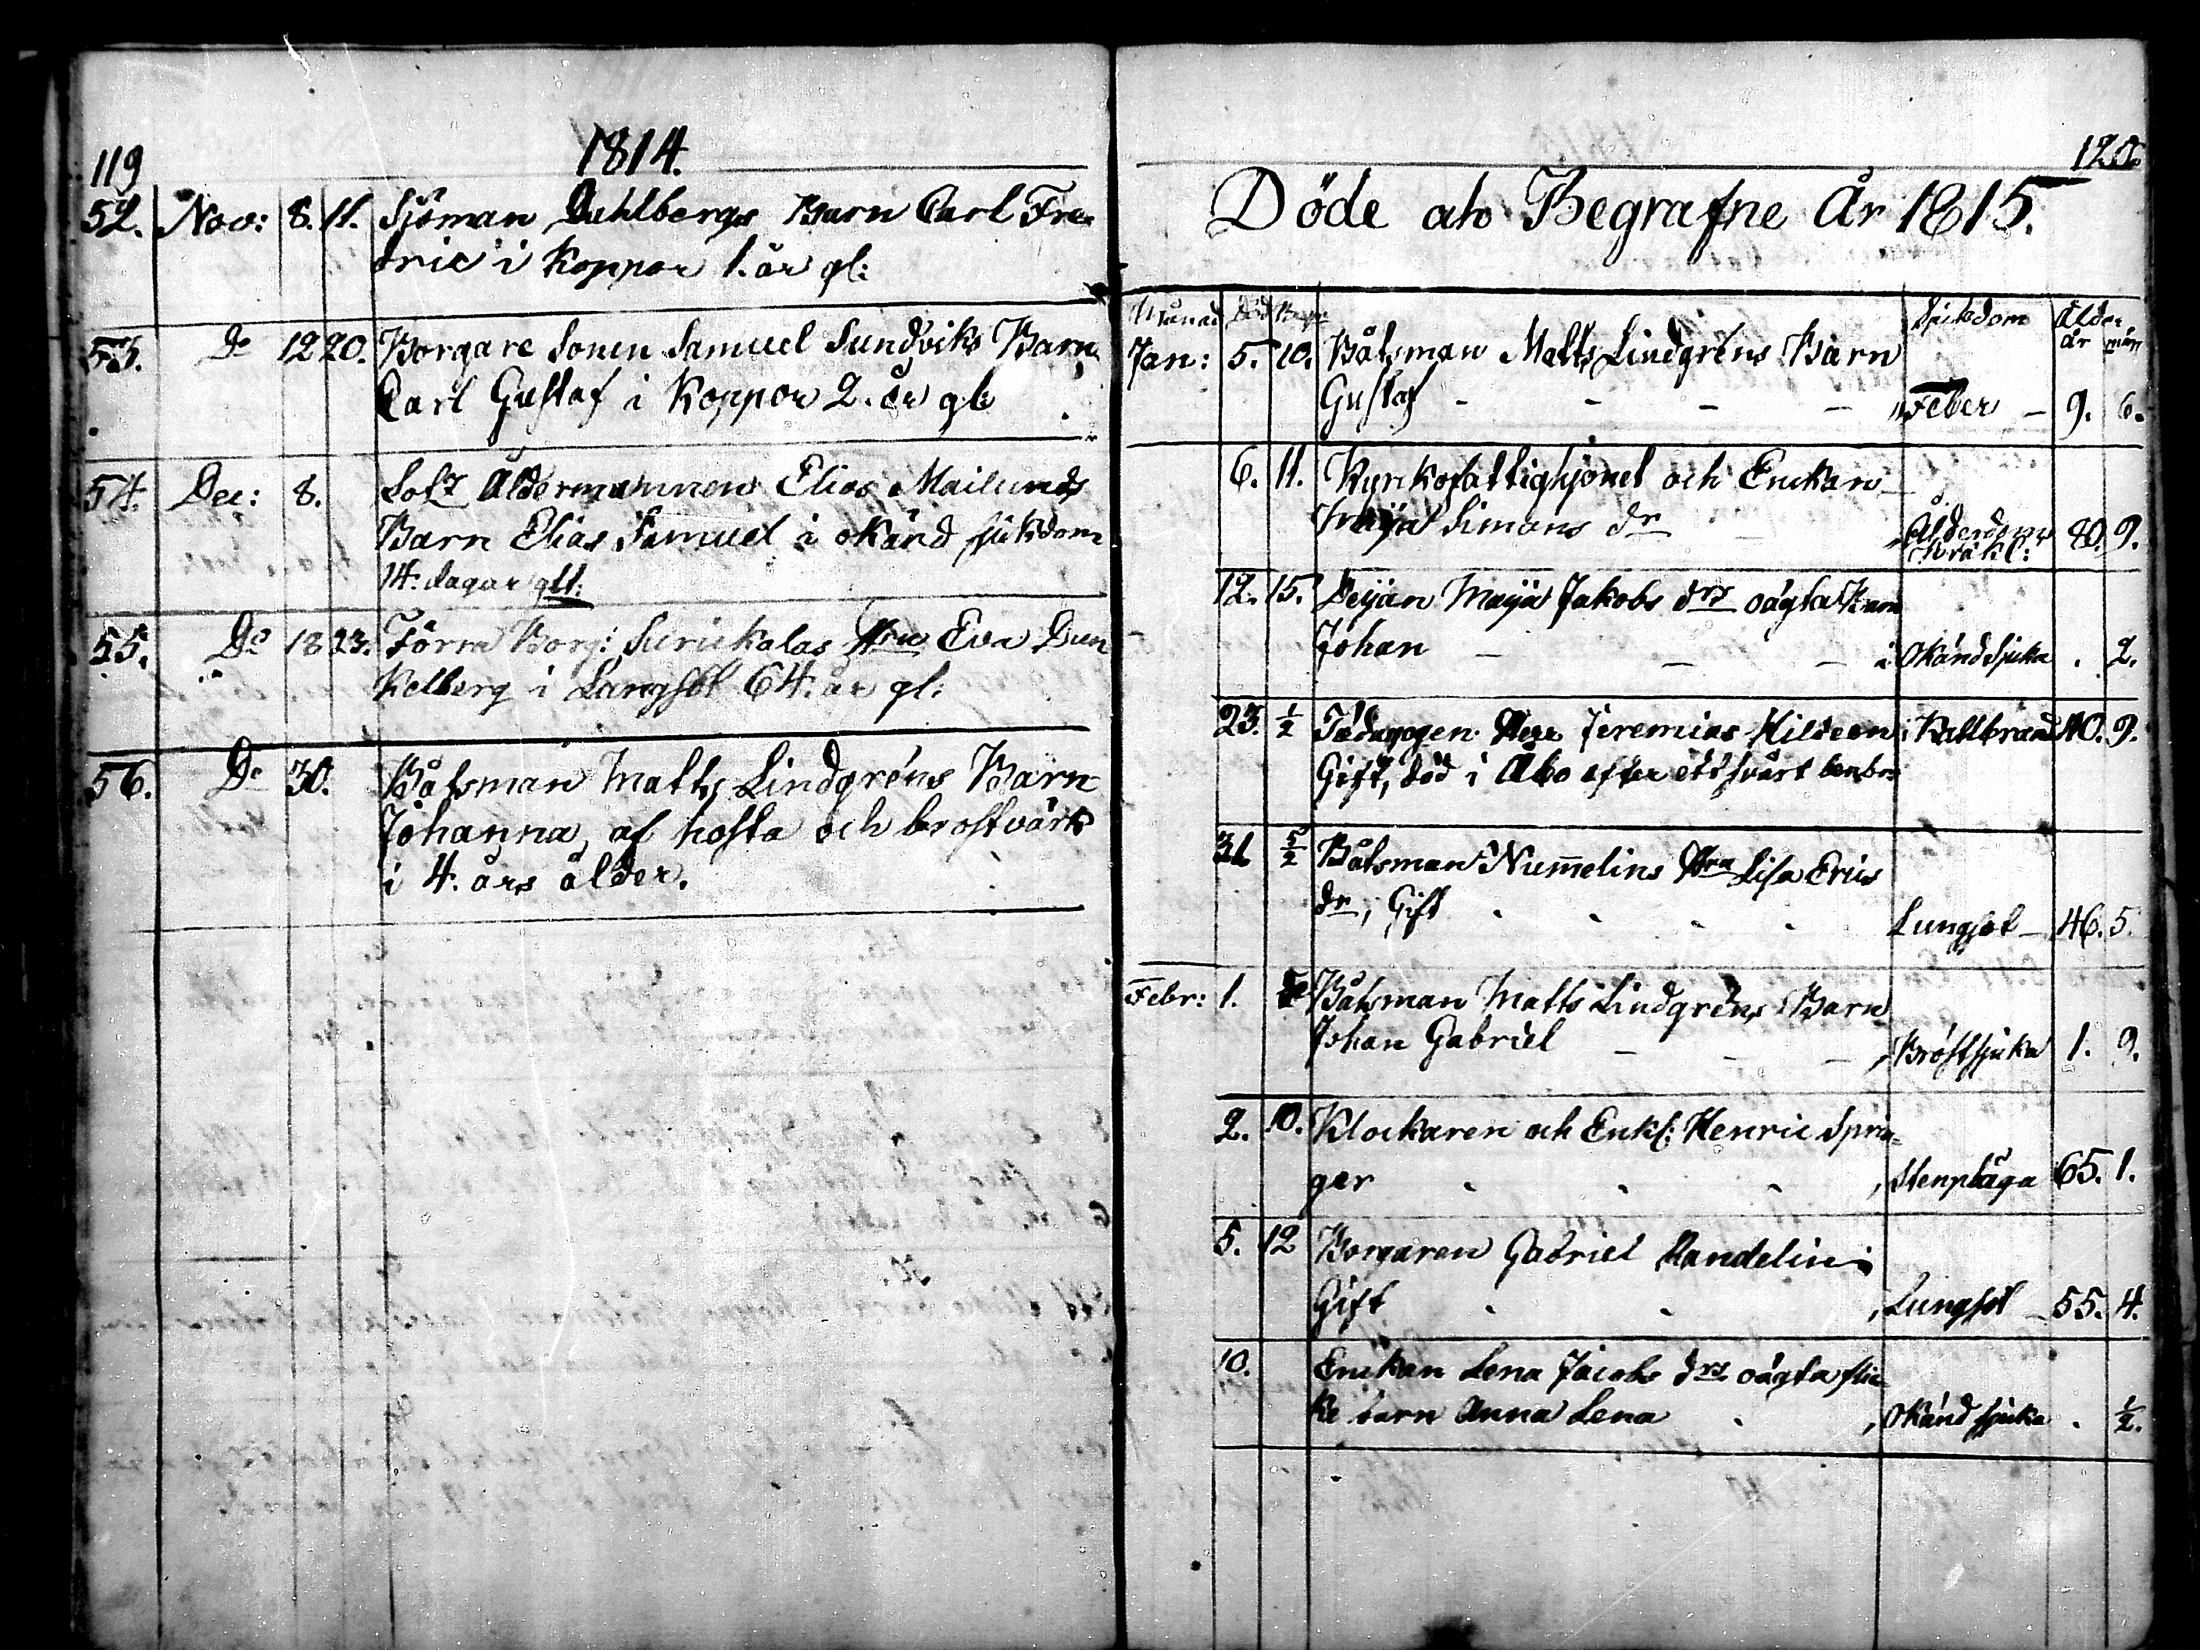 119
1814.
52. Nov: 8. 11. Sjöman Dahlbergs Barn Carl Fre-
dric i Koppor 1. år gl:
53. Do 12 20. Borgare Sonen Samuel Sundviks Barn
Carl Gustaf i Koppor 2. år gl:
54. Dec: 8. Lots Åldermannen Elias Mailunds
Barn Elias Samuel i okänd sjukdom
14. dagar gll:
55. Do 18 23. Förra Borg: Hru Eva Dun
kelberg i Lungsot 64. år gl:
56. Do 30. Båtsman Matts Lindgréns Barn
Johanna, af hosta och bröstvärk
i 4. års ålder.
120
Döde och Begrafne År 1815.
Månad Död Begr: Sjukdom Ålder
år mån
Jan: 5. 10. Båtsman Matts Lindgréns Barn
Gustaf - - - - Feber - 9. 6.
6. 11. Kyrkofattighjonet och Enkan
Maija Simons dr - Ålderdoms 80. 9.
bräckl:
12. 15. Deijan Maija Jakobs drs oägta Barn
Johan - - - i Okänd Sjuka . 2.
23. 1/2 Pædagogen Herr Jeremias Hildeen, Kallbrand 40. 9.
Gift, död i Åbo efter ett svårt benbr
31 5/2 Båtsman Nummelins Hru Lisa Erics
dr, Gift Lungsot - 46. 5.
Febr: 1. Båtsman Matts Lindgréns Barn
Johan Gabriel - - - Bröstsjuka 1. 9.
2. 10. Klockaren och Enkl: Henric Sprin-
ger , Stenplåga 65. 1.
5. 12 Borgaren Gabriel Randelin
Gift , Lungsot - 55. 4.
10. Enckan Lena Jacobs drs oägta flic-
ke barn Anna Lena , Okänd sjuka . 1/2.